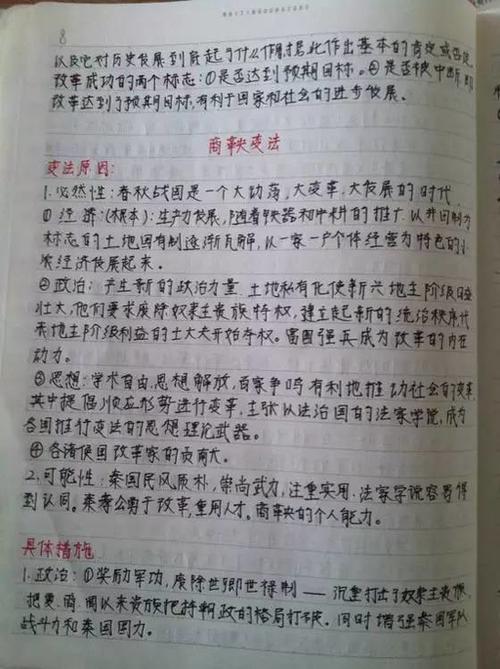 8
以及它对历史发展到底起了什么作用,据此作出基本的肯定或否定
改革成功的两个标志:①是否达到预期目标。②是否被中断,即
改革达到了预期目标,有利于国家和社会的进步发展。
商鞅变法
变法原因:
1.必然性:春秋战国是一个大动荡,大变革,大发展的时代
①经济:(根本):生产力发展,随着铁器和牛耕的推广以井田制为
标志的土地国有制逐渐瓦解,以一家一户个体经营为特色的小
农经济发展起来。
②政治:产生新的政治力量.土地私有化使新兴地主阶级日益
壮大,他们要求废除奴隶主贵族特权,建立起新的统治秩序,代
表地主阶级利益的士大夫开始夺权。富国强兵成为改革的内在
动力。
③思想:学术自由,思想解放,百家争鸣有利地推动社会的变革
其中提倡顺应形势进行变革,主张以法治国的法家学院,成为
各国推行变法的思想理论武器。
④各诸侯国改革家的贡献大。
2.可能性:秦国民风质朴,崇尚武力,注重实用.法家学说容易得
到认同。秦孝公勇于改革,重用人才。商鞅的个人能力。
具体措施
1.政治:①奖励军功,废除世卿世禄制——沉重打击了奴隶主贵族,
把夏、商、周以来贵族把持朝政的格局打破。同时增强秦国军队
战斗力和秦国国力。